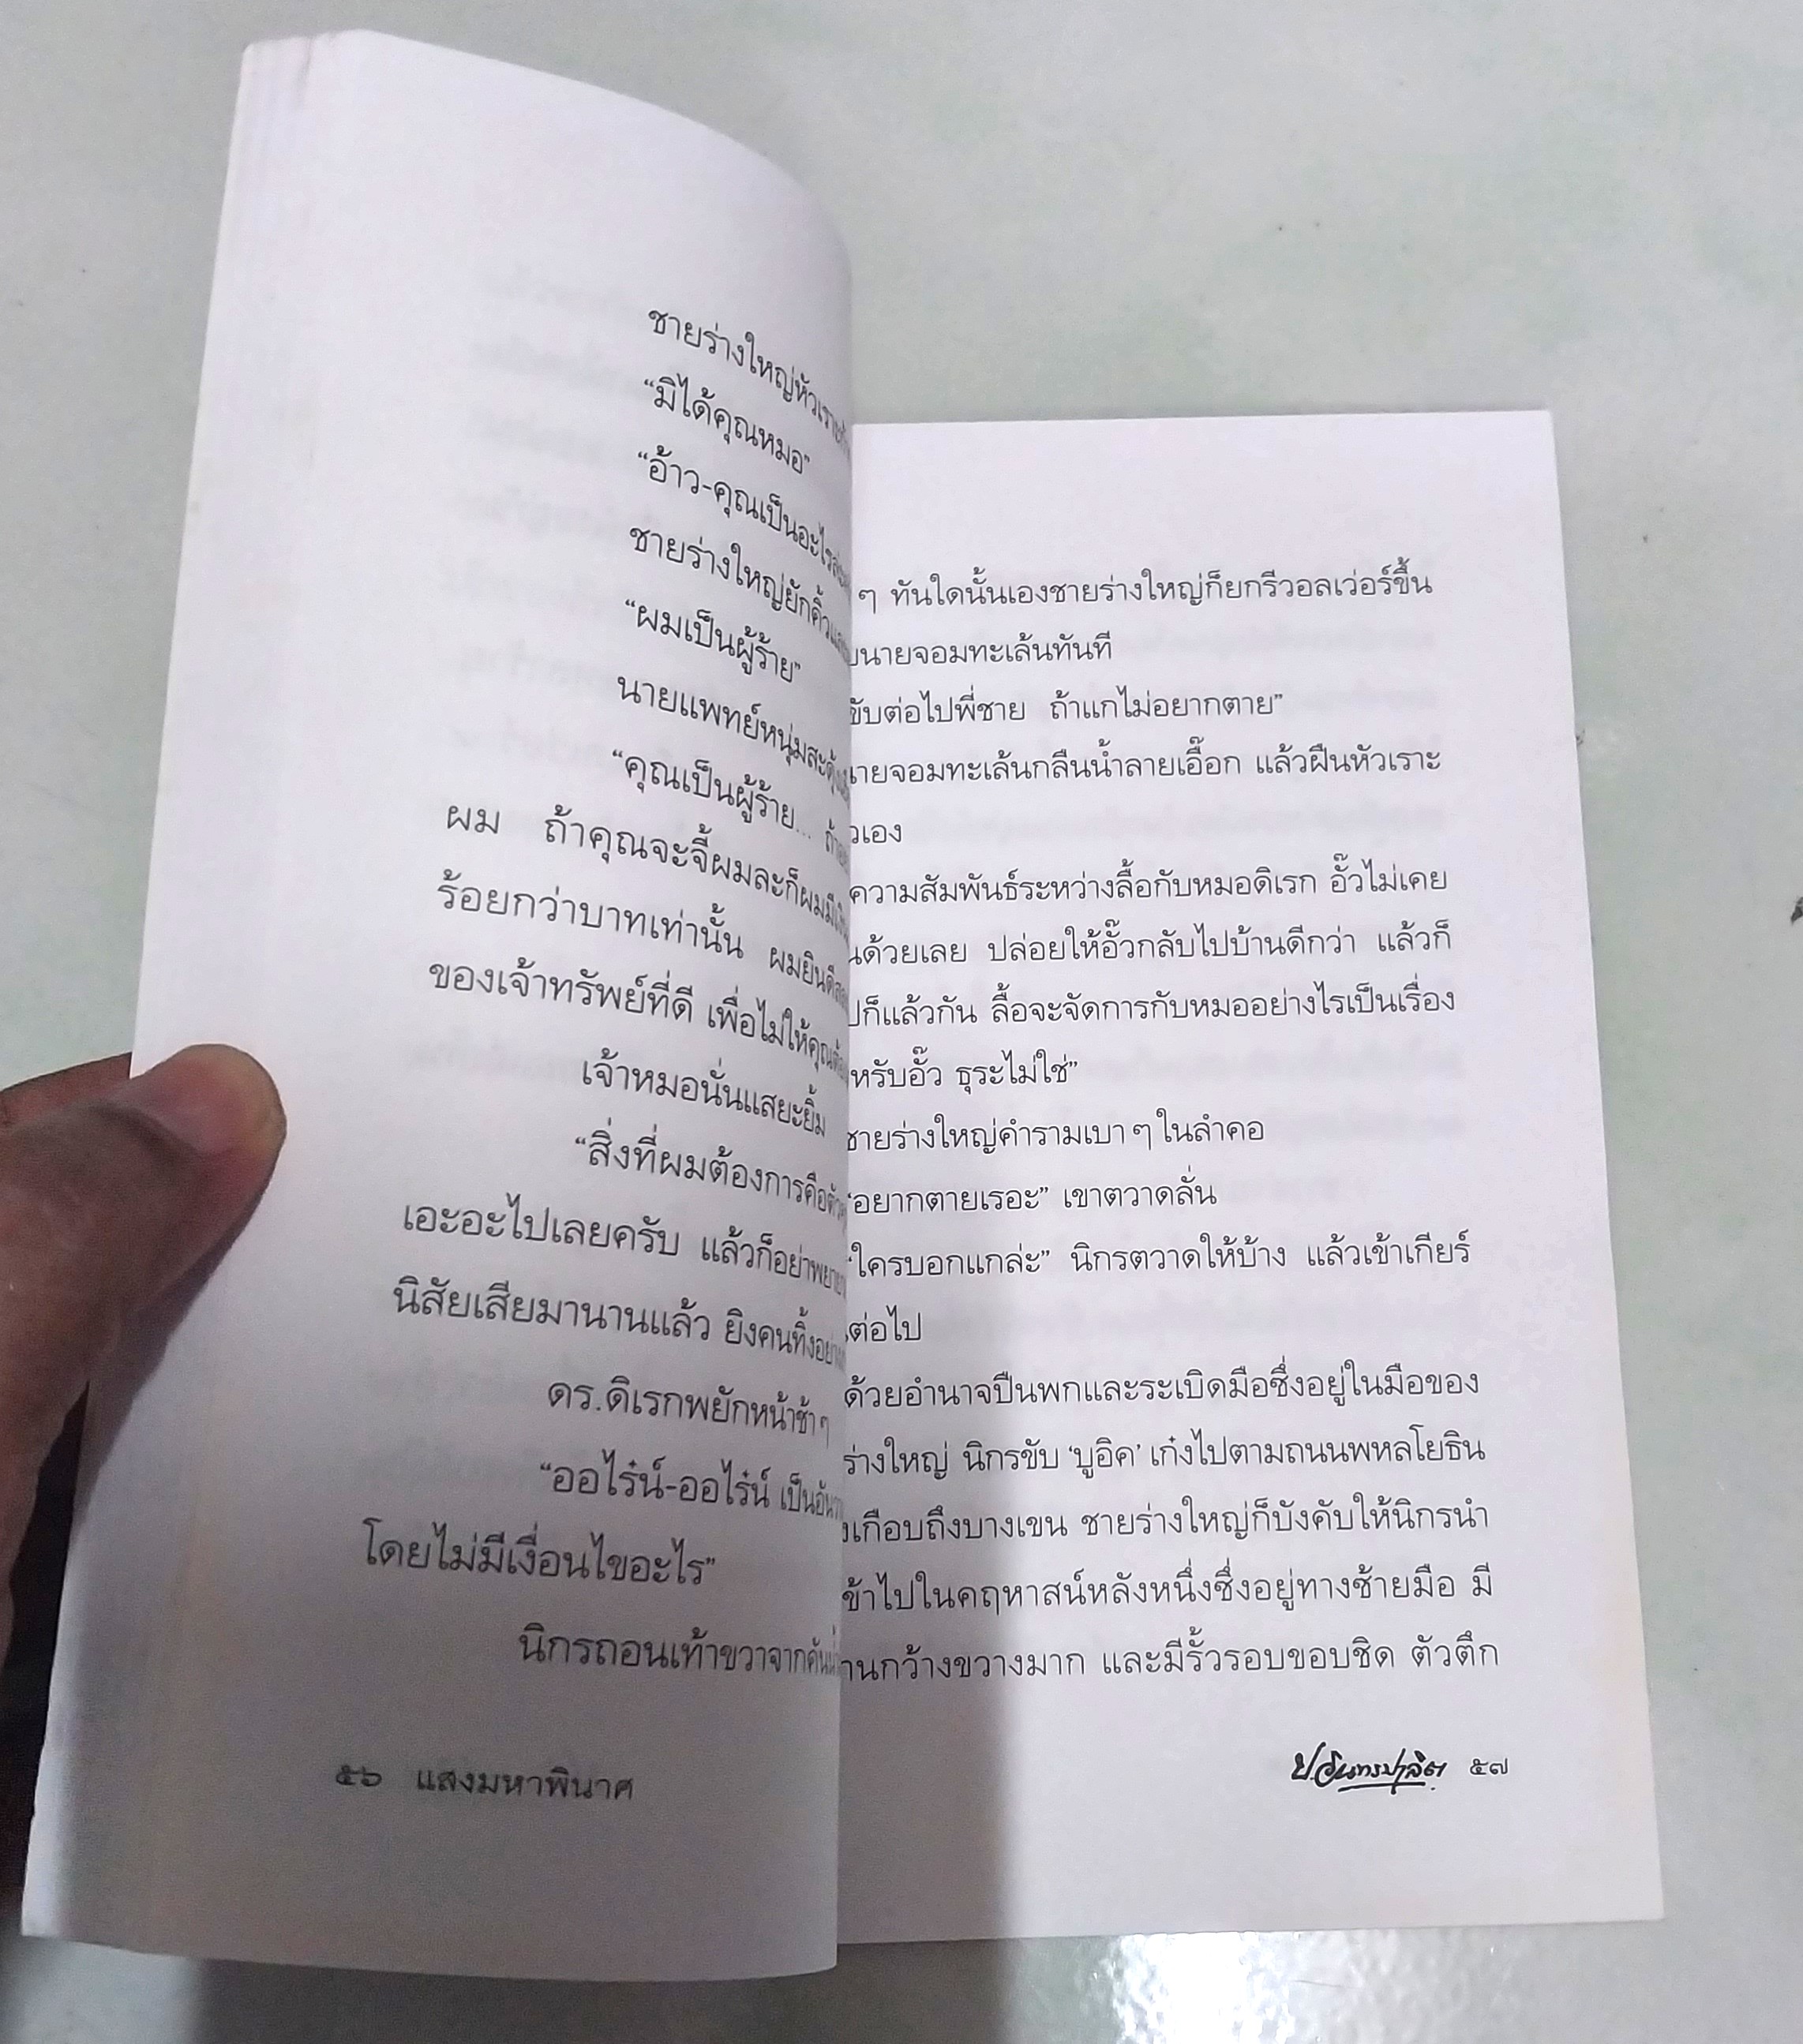 ชายร่างใหญ่หัวเราะ
“มิได้คุณหมอ”
“อ้าว-คุณเป็นอะไร
ชายร่างใหญ่ยักคิ้ว
“ผมเป็นผู้ร้าย”
นายแพทย์หนุ่มสะดุ้ง
“คุณเป็นผู้ร้าย...
ผม ถ้าคุณจะจี้ผมละก็ผมมี
ร้อยกว่าบาทเท่านั้น ผมยินดี
ของเจ้าทรัพย์ที่ดี เพื่อไม่ให้คุณ
เจ้าหมอนั่นแสยะยิ้ม
“สิ่งที่ผมต้องการคือ
เอะอะไปเลยครับ แล้วก็อย่า
นิสัยเสียมานานแล้ว ยิงคนทิ้ง
ดร.ดิเรกพยักหน้าช้าๆ
“ออไร๋น์-ออไร๋น์ เป็นอัน
โดยไม่มีเงื่อนไขอะไร”
นิกรถอนเท้าขวาจาก
๕๖ แสงมหาพินาศ
ๆ ทันใดนั้นเองชายร่างใหญ่ก็ยกรีวอลเว่อร์ขึ้น
นายจอมทะเล้นทันที
ขับต่อไปพี่ชาย ถ้าแกไม่อยากตาย”
นายจอมทะเล้นกลืนน้ำลายเอื๊อก แล้วฝืนหัวเราะ
เอง
ความสัมพันธ์ระหว่างลื้อกับหมอดิเรก อั๊วไม่เคย
ด้วยเลย ปล่อยให้อั๊วกลับไปบ้านดีกว่า แล้วก็
ก็แล้วกัน ลื้อจะจัดการกับหมออย่างไรเป็นเรื่อง
หรับอั๊ว ธุระไม่ใช่”
ชายร่างใหญ่คำรามเบาๆ ในลำคอ
“อยากตายเรอะ” เขาตวาดลั่น
“ใครบอกแกล่ะ” นิกรตวาดให้บ้าง แล้วเข้าเกียร์
ต่อไป
ด้วยอำนาจปืนพกและระเบิดมือซึ่งอยู่ในมือของ
ร่างใหญ่ นิกรขับ ‘บูอิค’ เก๋งไปตามถนนพหลโยธิน
เกือบถึงบางเขน ชายร่างใหญ่ก็บังคับให้นิกรนำ
เข้าไปในคฤหาสน์หลังหนึ่งซึ่งอยู่ทางซ้ายมือ มี
านกว้างขวางมาก และมีรั้วรอบขอบชิด ตัวตึก
ป.อินทรปาลิต ๕๗